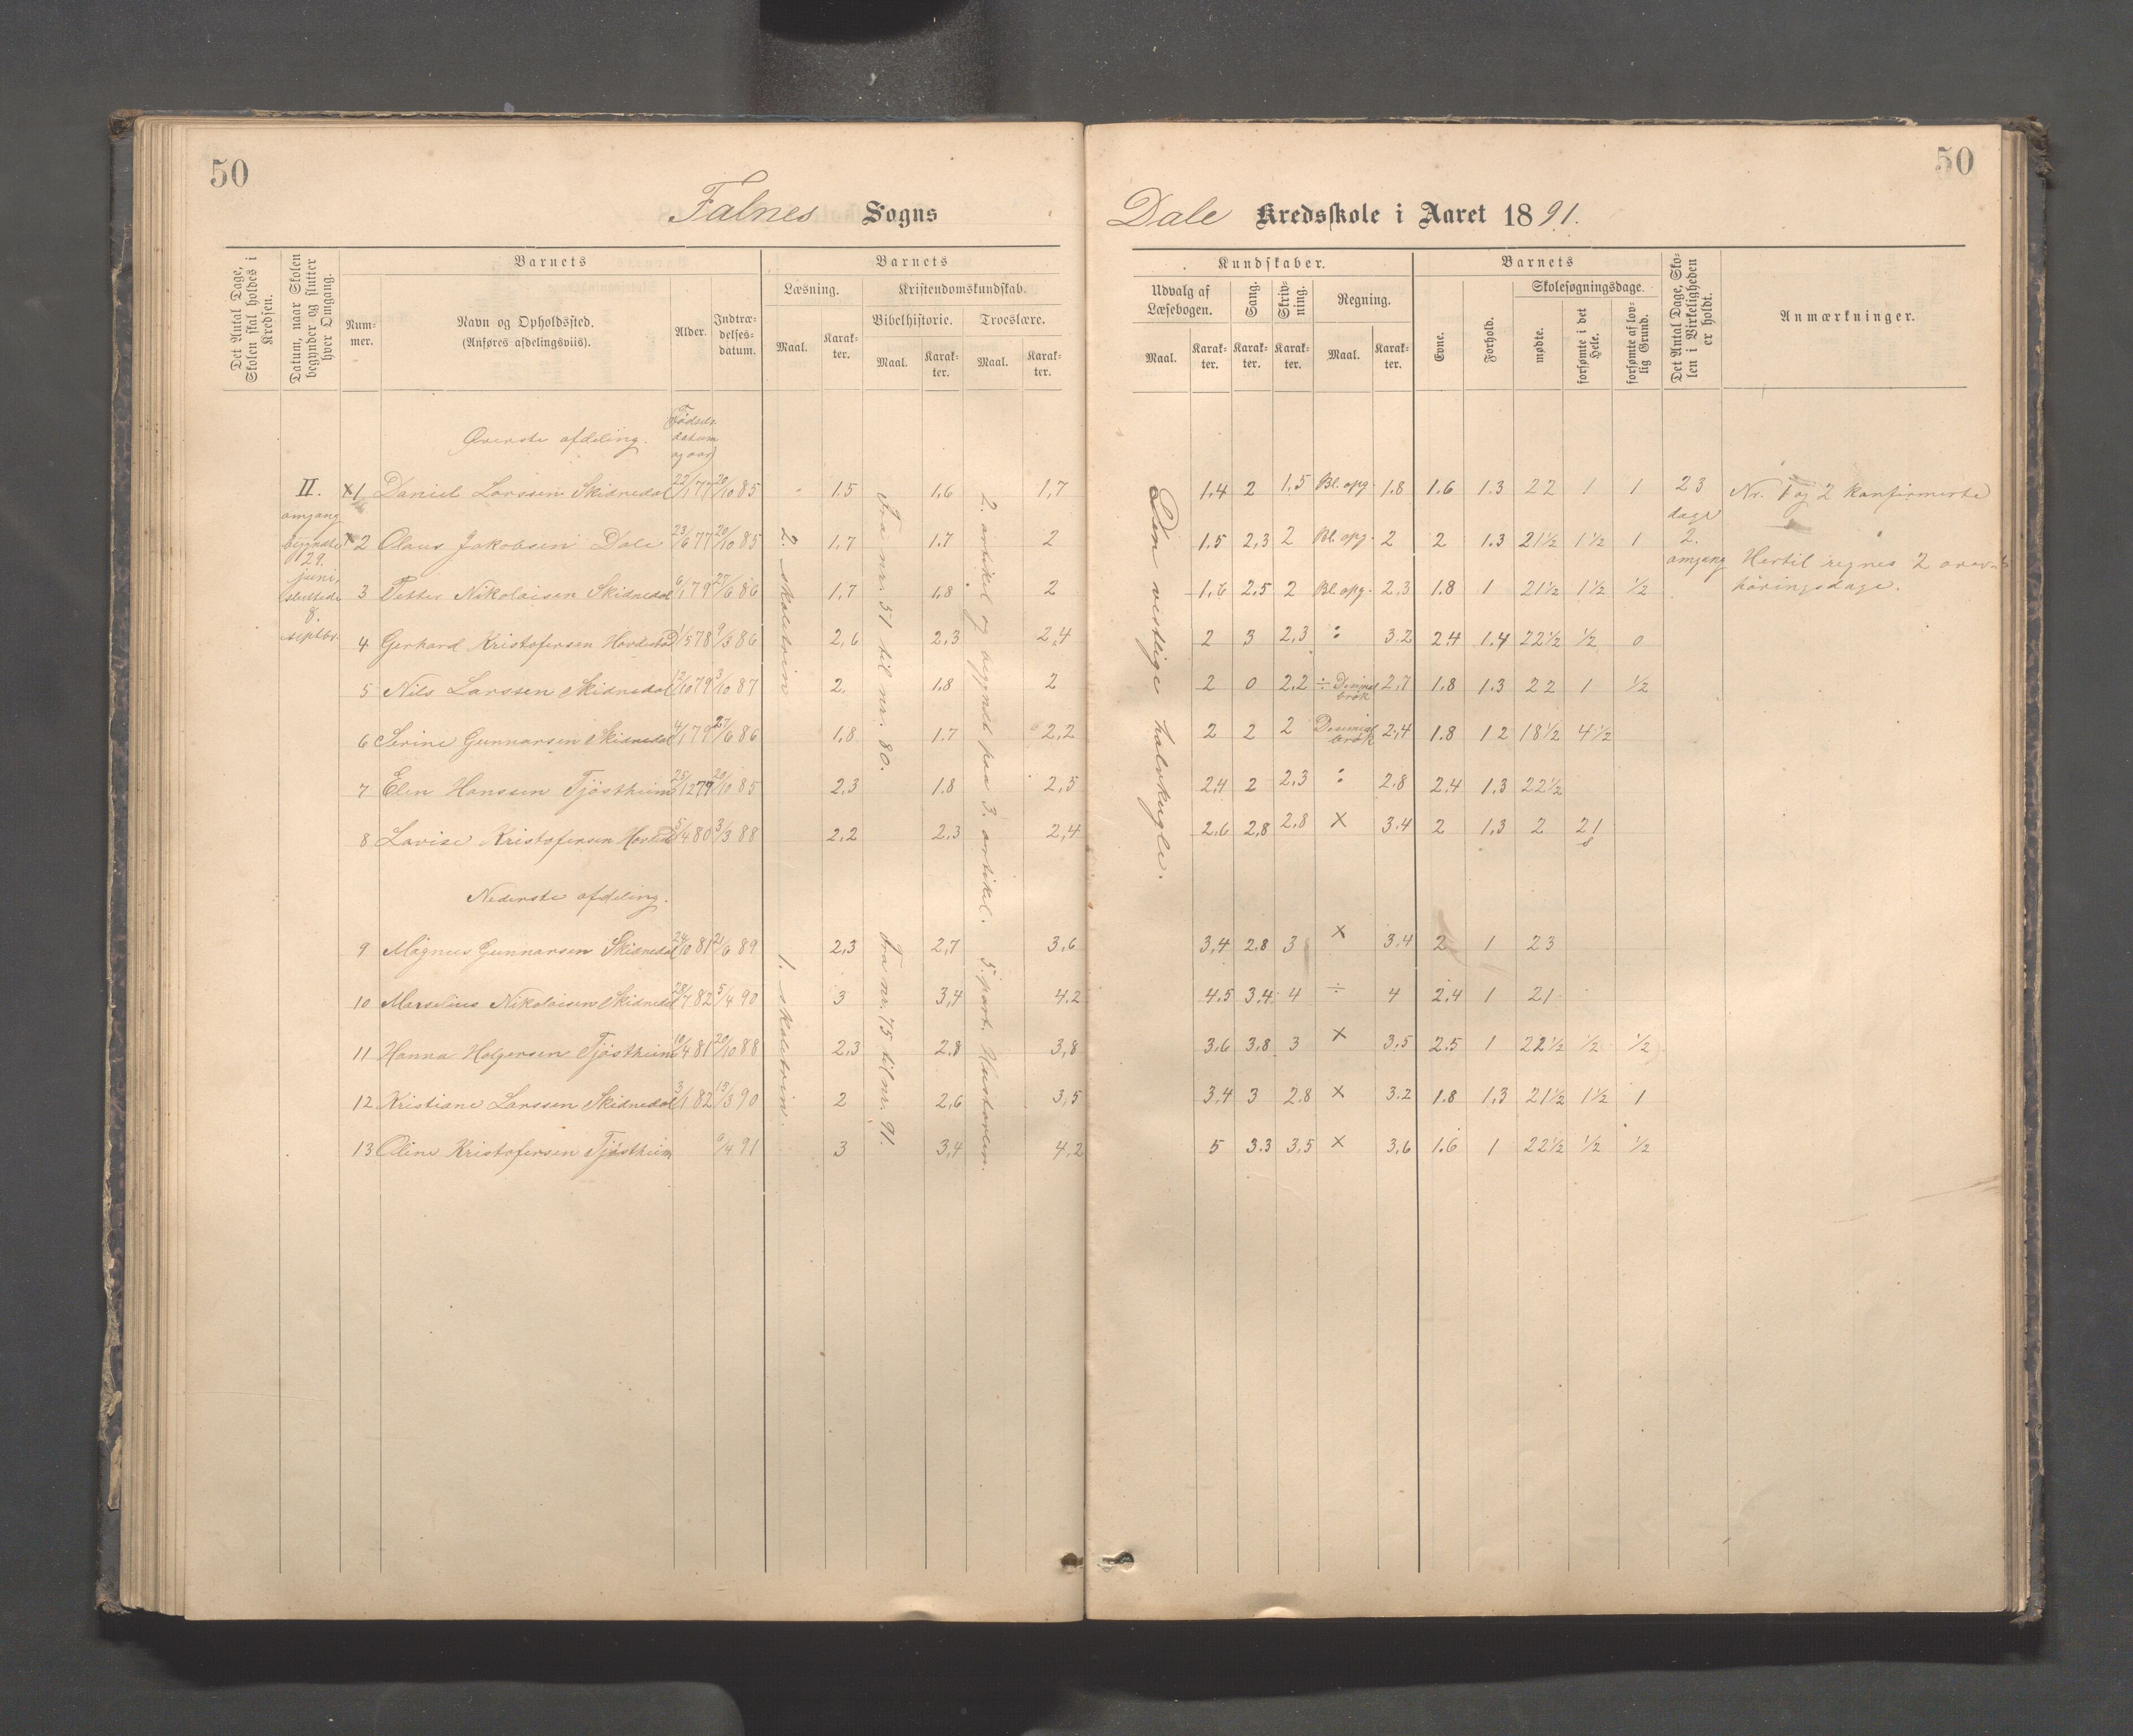 50
50
Falnes Sogns
Dale Kredsskole i Aaret 1891.
Det Antal Dage, Skolen skal holdes i Kredsen.
Datum, naar Skolen begynder og slutter hver Omgang.
Barnets
Num-
mer.
Navn og Opholdssted.
(Anføres afdelingsviis).
Alder.
Indtræ-
delses-
datum.
Barnets
Læsning.
Maal.
Karak-
ter.
Kristendomskundskab.
Bibelhistorie.
Troeslære.
Maal.
Karak-
ter.
Maal.
Karak-
ter.
Kundskaber.
Udvalg af
Læsebogen.
Sang.
Skriv-
ning.
Regning.
Maal.
Karak-
ter.
Karak-
ter.
Karak-
ter.
Maal.
Karak-
ter.
Barnets
Evne.
Forhold.
Skolesøgningsdage.
mødte.
forsømte i det Hele.
forsømte af lov-
lig Grund.
Det Antal Dage, Sko-
len i Virkeligheden
er holdt.
Anmærkninger.
Øverste afdeling.
Fødsels
datum
og aar
II.
omgang
begyndte
29.
juni,
sluttede
8.
septbr.
x1 Daniel Larssen Skidnedal 22/1 77 20/10 85 1.5 1.6 1,7 1,4 2 1,5 Bl. opg. 1.8 1.6 1.3 22 1 1 23 Nr. 1 og 2 konfirmerte
dage
x2 Olaus Jakobsen Dale 23/6 77 20/10 85 1,7 1.7 2 1.5 2,3 2 Bl. opg. 2 2 1.3 21½ 1½ 1 2.
omgang Hertil regnes 2
3 Petter Nikolaisen Skidnedal 6/1 79 27/6 86 1,7 1,8 2 1,6 2,5 2 Bl. opg. 2,3 1.8 1 21½ 1½ ½ høringsdage.
4 Gerhard Kristofersen 1/5 78 9/3 86 2,6 2,3 2,4 2 3 2,3 : 3.2 2.4 1.4 22½ ½ 0
5 Nils Larssen Skidnedal 12/10 79 3/10 87 2. 1.8 2 2 0 2,2 ÷ Desimal
brøk 2,7 1.8 1.3 22 1 ½
6 Serine Gunnarsen Skidnedal 4/1 79 27/6 86 1,8 1.7 2,2 2 2 2 Desimal
brøk 2,4 1.8 1 2 18½ 4½
7 Elen Hanssen Tjøstheim 25/12 77 20/10 85 2,3 1.8 2,5 2,4 2 2,3 : 2.8 2.4 1.3 22½
8 Lovise Kristofersen 5/4 80 3/3 88 2,2 2,3 2,4 2.6 2,8 2,8 x 3.4 2 1,3 2 21
2. skoletrin
Fra nr. 51 til nr. 80.
2. artikel og begyndt paa 3. artikel.
Den vestlige halvkugle.
Nederste afdeling.
9 Magnus Gunnarsen Skidnedal 24/10 81 21/6 89 2,3 2,7 3,6 3,4 2.8 3 x 3,4 2 1 23
10 Marselius Nikolaisen Skidnedal 28/7 82 5/4 90 3 3,4 4.2 4.5 3.4 4 ÷ 4 2.4 1 21
11 Hanna Holgersen Tjøstheim 10/4 81 20/10 88 2,3 2.8 3,8 3.6 3,8 3 x 3,5 2.5 1 22½ ½ ½
12 Kristiane Larssen Skidnedal 3/1 82 15/3 90 2 2,6 3,5 3,4 3 2.8 x 3.2 1.8 1,3 21½ 1½ 1
13 Oline Kristofersen Tjøstheim 6/4 91 3 3,4 4,2 5 3.3 3,5 x 3,6 1.6 1 22½ ½ ½
1. skoletrin.
Fra nr. 75 til nr. 91.
5. part. Hustavlen.